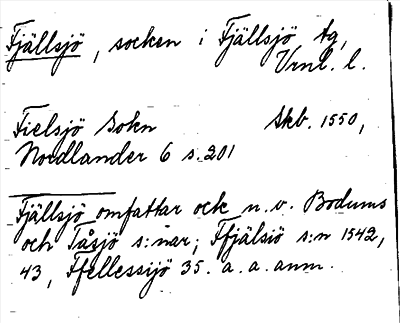 Fjällsjö, socken i Fjällsjö tg,
Vrnl. l.
Fielsjö Sokn Skb. 1550,
Nordlander 6 s. 201
Fjällsjö omfattar ock n.v. Bodums
och Tåsjö s:nar; Ffjälsiö s:n 1542,
43, Ffellessijö 35. a. a. anm.